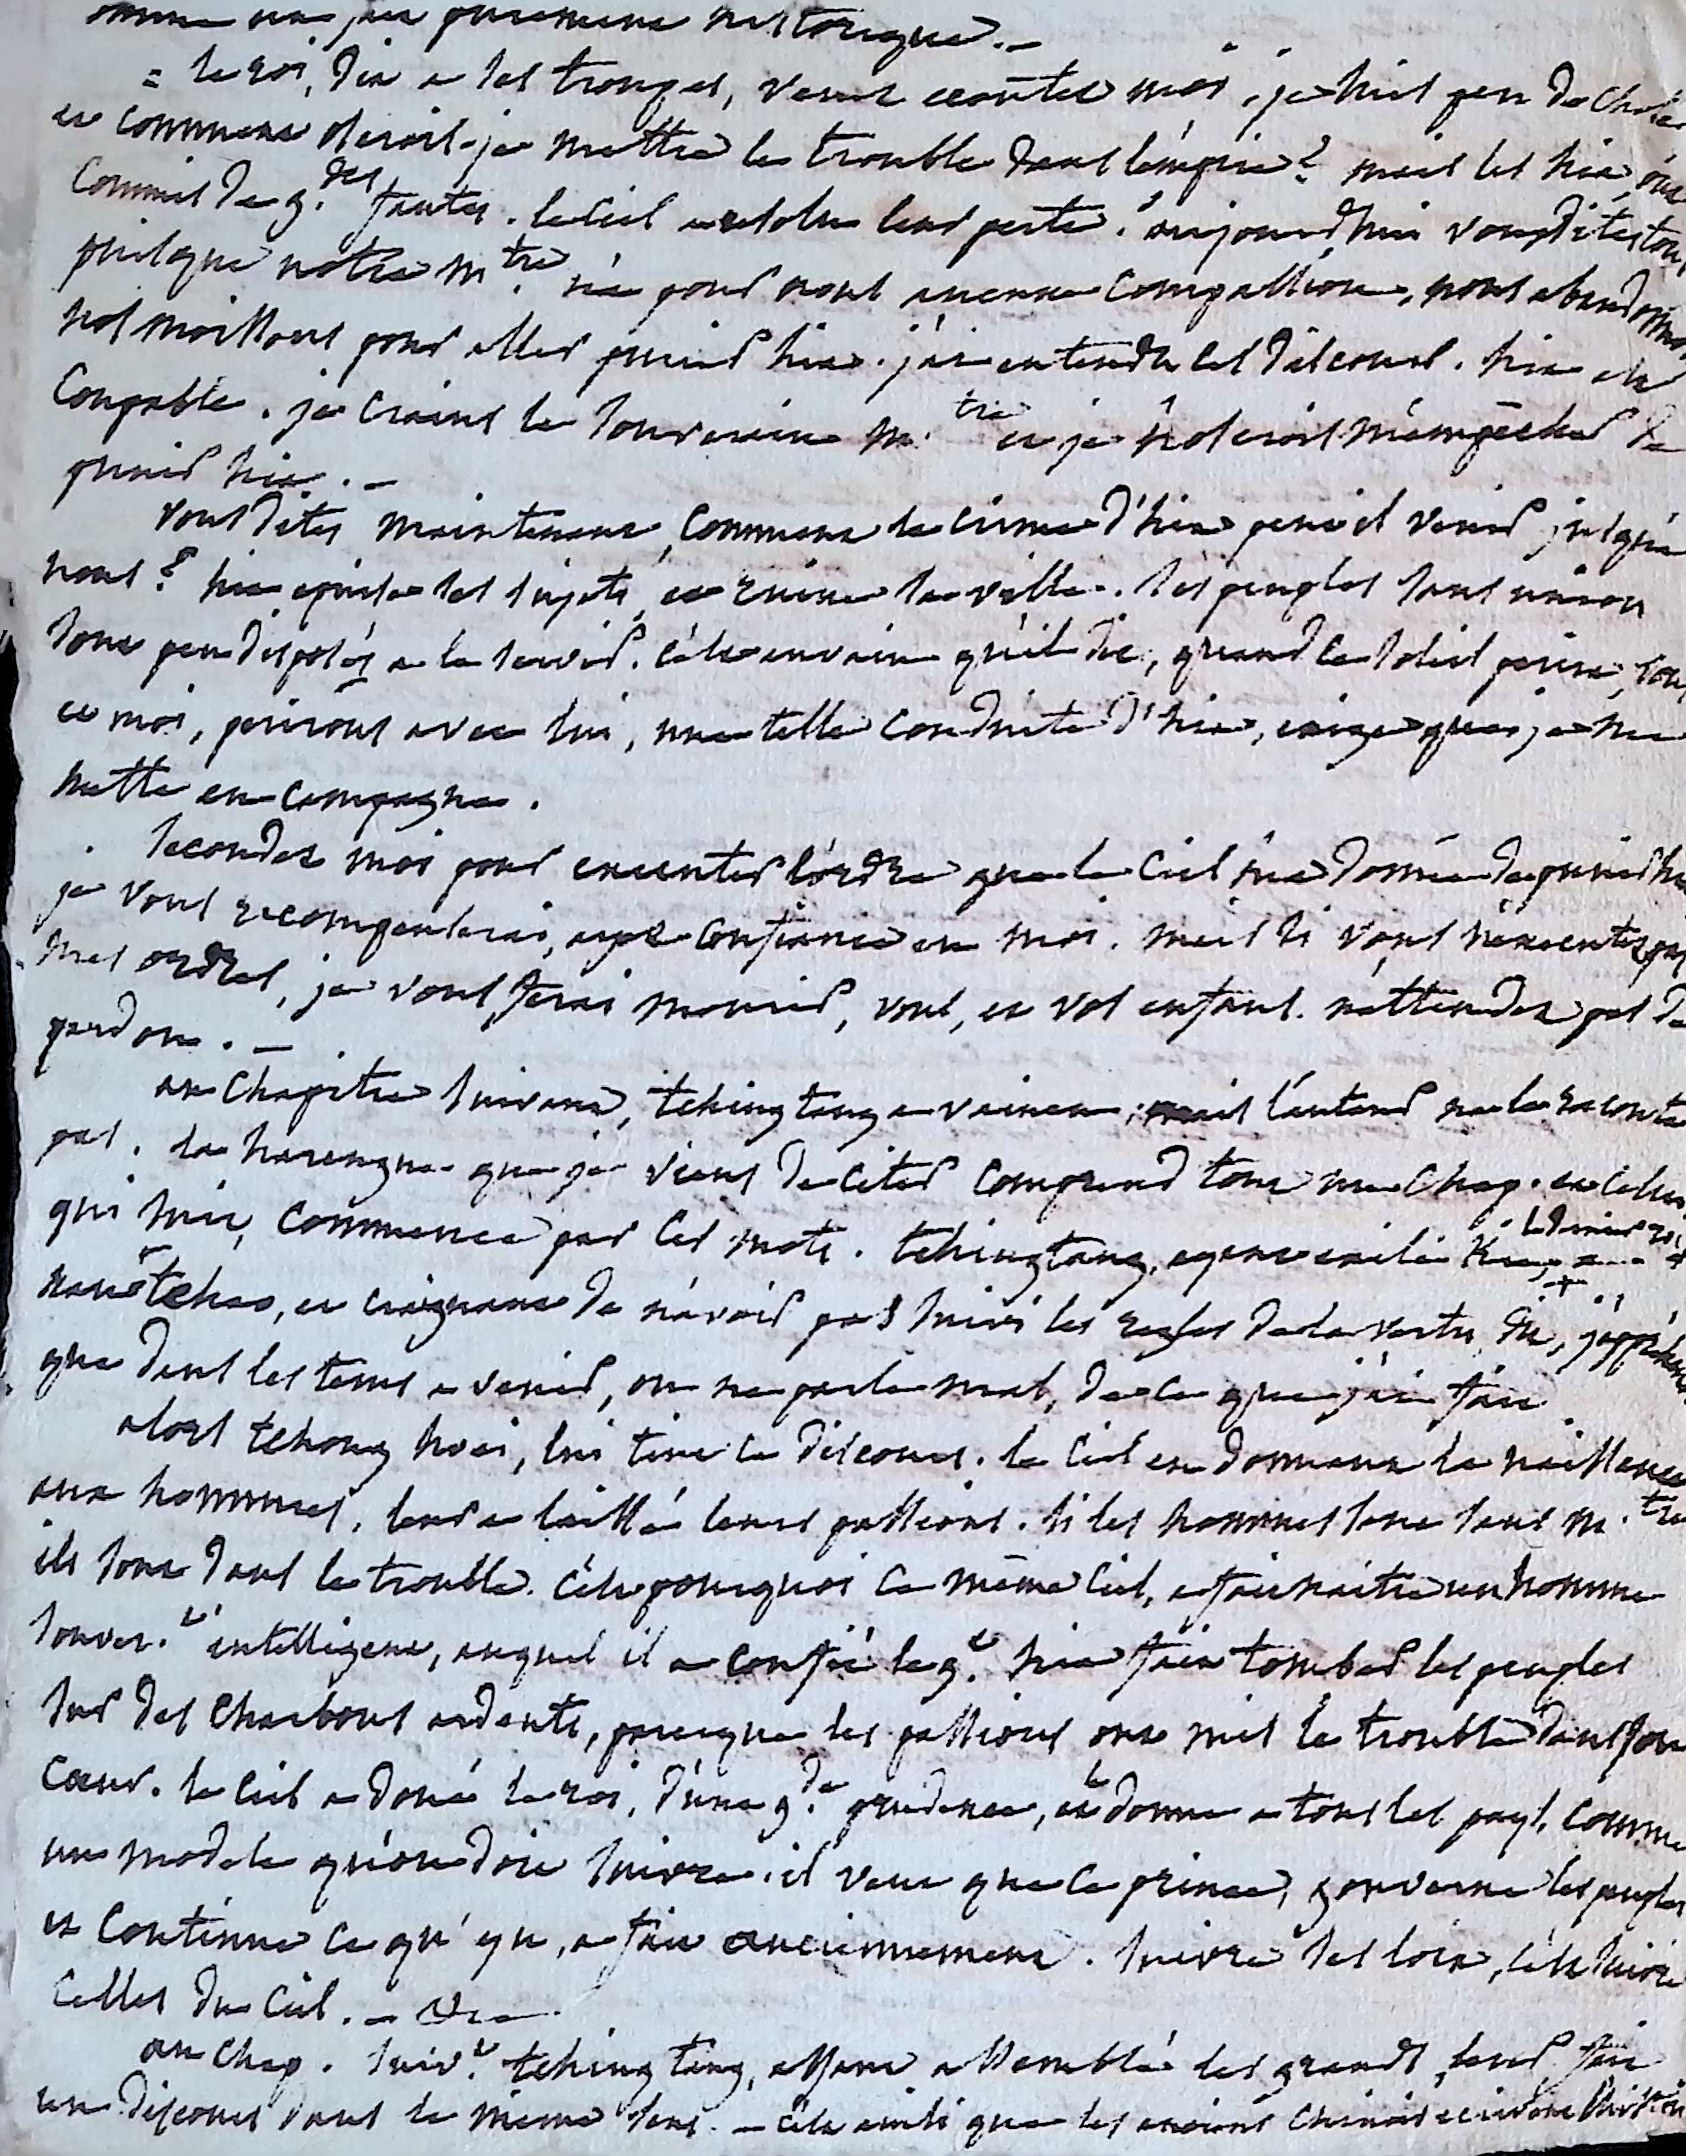 historique. _
= le roi, dit a ses troupes, venez ecoutez moi. je suis peu de chose
et comment oserois-je mettre le trouble dans l'empire? mais les hia, ont
commis de g.des fautes. le ciel a resolu leur perte. aujourdhui vous dites tous
puisque notre m.tre n'a pour nous aucune compassion, nous abandonnons
nos moissons pour aller punir hia. j'ai entendu ces discours. hia est
coupable. je crains le souverain m.tre et je n'oserois m'empêcher de
punir hia. _
vous dites maintenant, comment le crime d'hia peut il venir jusqu'a
nous? hia epuise ses sujets, et ruine sa ville. ses peuples sans union
sont peu disposés a le servir. c'est en vain qu'il dit, quand le soleil perira, vous
et moi, perirons avec lui, une telle conduite d'hia, exige que je me
mette en campagne.
secondez moi pour executer l'ordre que le ciel m'a donné de punir hia
je vous recompenserai, ayez confiance en moi. mais si vous n'executez pas
mes ordres, je vous ferai mourir, vous, et vos enfans. n'attendez pas de
pardon. _
au chapitre suivant, tching tang a vaincu; mais l'auteur ne le raconte
pas. la harangue que je viens de citer comprend tout un chap. et celui
qui suit, commence par ces mots. tchingtang, ayant exilé Kie, a
le dernier roi
nan tchao, et craignant de n'avoir pas suivi les regles de la vertu, dit, j'apprehende
que dans les tems a venir, on ne parle mal, de ce que j'ai fait
alors tchong hoei, lui tint ce discours. le ciel en donnant la naissance
aux hommes, leur a laissé leurs passions. si les hommes sont sans m.tre
ils sont dans le trouble. c'est pourquoi ce même ciel, a fait naitre un homme
souver.t intelligent, auquel il a confié le g.t hia fait tomber les peuples
sur des charbons ardents, parceque les passions ont mis le trouble dans son
coeur. le ciel a doué le roi, d'une g.de prudence, et le donne a tous les pays, comme
un modele qu'on doit suivre. il veut que ce prince, gouverne les peuples
et continue ce qu'yu, a fait anciennement. suivre ses loix, c'est suivre
celles du ciel. _
au chap. suiv.t tching tang, ayant assemblé les grands, leur fait
un discours dans le même sens. _ c'est ainsi que les anciens chinois ecrivent l'histoire